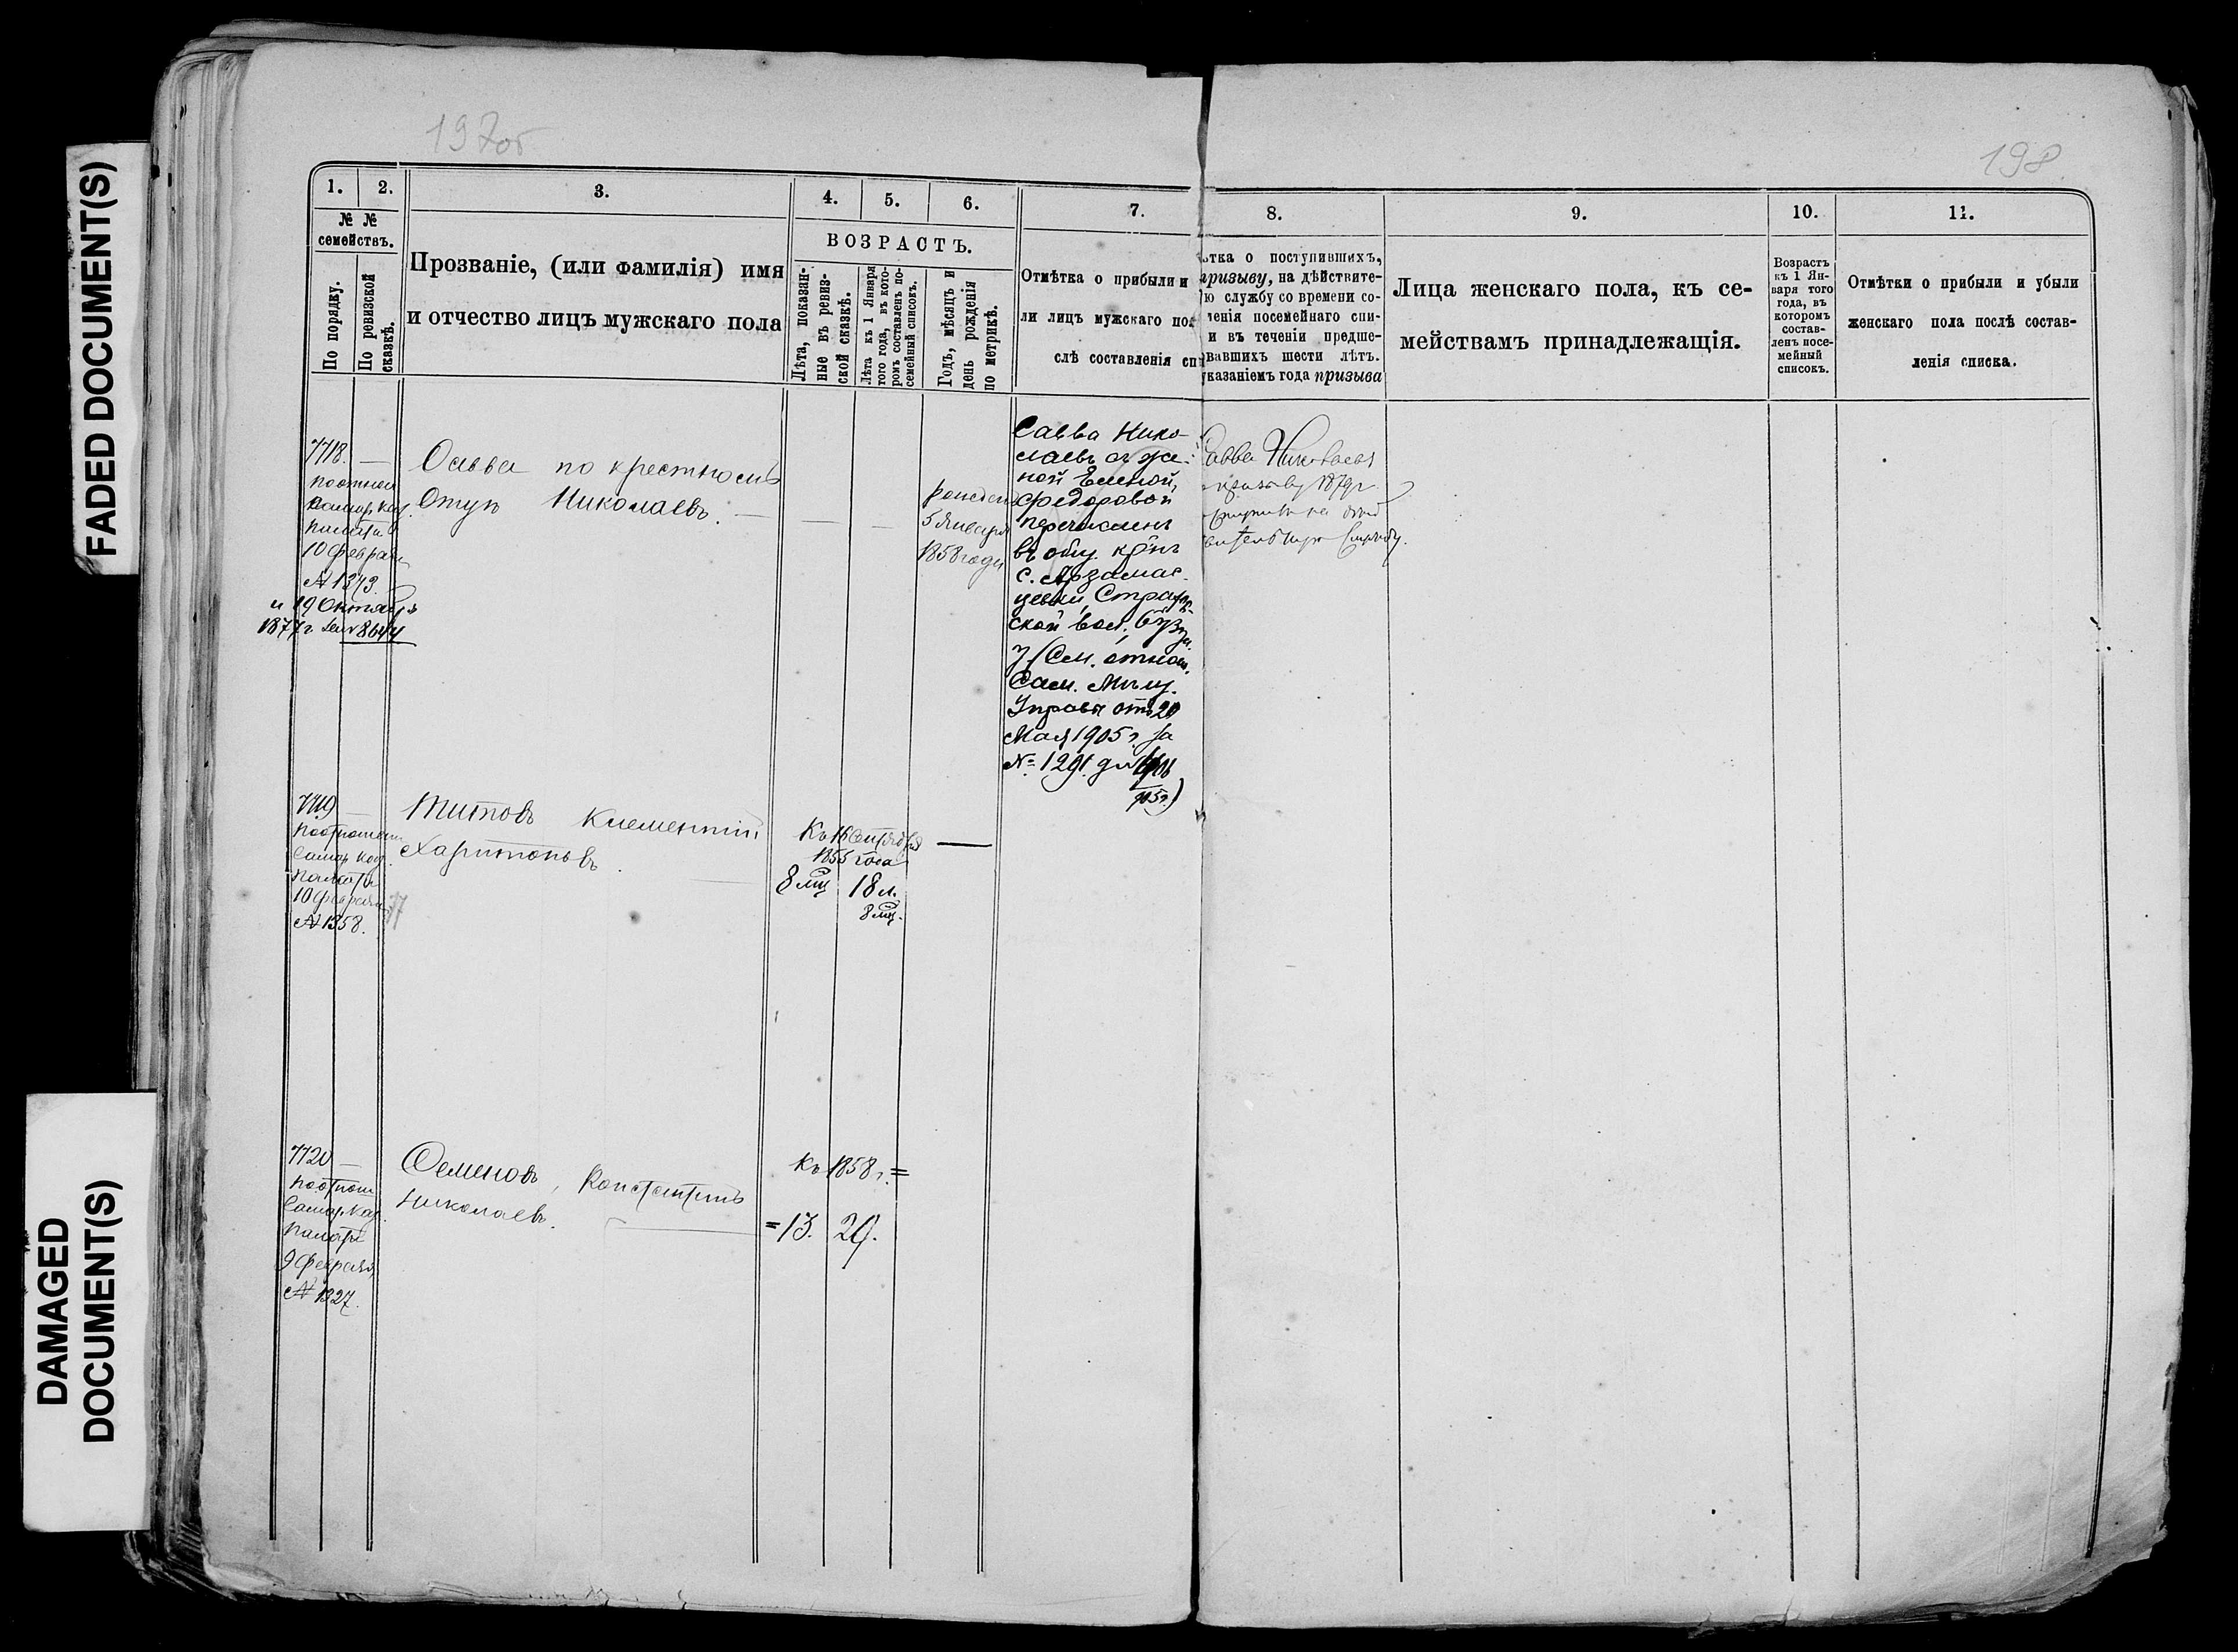 FADED DOCUMENT(S)
DAMAGED
DOCUMENT(S)
197об
198
1.
2.
3.
4.
5.
6.
7.
8.
9.
10.
11.
№ №
семействъ.
По порядку.
По ревизской
сказкѣ.
Прозваніе, (или фамилія) имя
и отчество лицъ мужскаго пола
ВОЗРАСТЪ.
Лѣта, показан-
ные въ ревиз-
ской сказкѣ.
Лѣта къ 1 Января
того года, въ кото-
ромъ составленъ по-
семейный списокъ.
Годъ, мѣсяцъ и
день рожденія
по метрикѣ.
Отмѣтка о прибыли и
ли лицъ мужскаго пол
слѣ составленія сп
ѣтка о поступившихъ,
призыву, на дѣйствите-
ю службу со времени со-
ленія посемейнаго спи-
и въ теченіи предше-
вавшихъ шести лѣтъ.
указаніемъ года призыва
Лица женскаго пола, къ се-
мействамъ принадлежащія.
Возрастъ
къ 1 Ян-
варя того
года, въ
которомъ
состав-
ленъ посе-
мейный
списокъ.
Отмѣтки о прибыли и убыли
женскаго пола послѣ состав-
ленія списка.
7718. —
по отнош
Самар. Каз.
Палаты
10 февраля
№ 1343.
и 19 Октября
1877 г. 8644
Савва по крестному
Отцу Николаевъ. —
—
—
рожденъ
5 Января
1858 года
Савва Нико-
лаевъ съ же-
ной Еленой
Федоровой
перечисленъ
въ общ. кр-нъ
с. Арзамас-
цевки, Страх-
ской вол. Бузу.
у. (См. отнош.
Сам. Мѣщ.
Управы отъ 20
Мая 1905 г. за
№ 1291.
905 г.)
Савва Николаевъ
призыву 1879 г.
на дѣй
службу.
7719 —
по отношен
Самар. Каз.
Палаты
10 февраля 77
№ 1358.
Титовъ Клементій
Харитоновъ.
Къ 16 Сентября
1855 года
8 мц
18 л.
8 мц.
—
7720 —
по отнош
Самар. Каз.
Палаты
9 февраля
№ 1327.
Семеновъ, Константинъ
Николаевъ.
Къ 1858 г. =
= 13.
29.